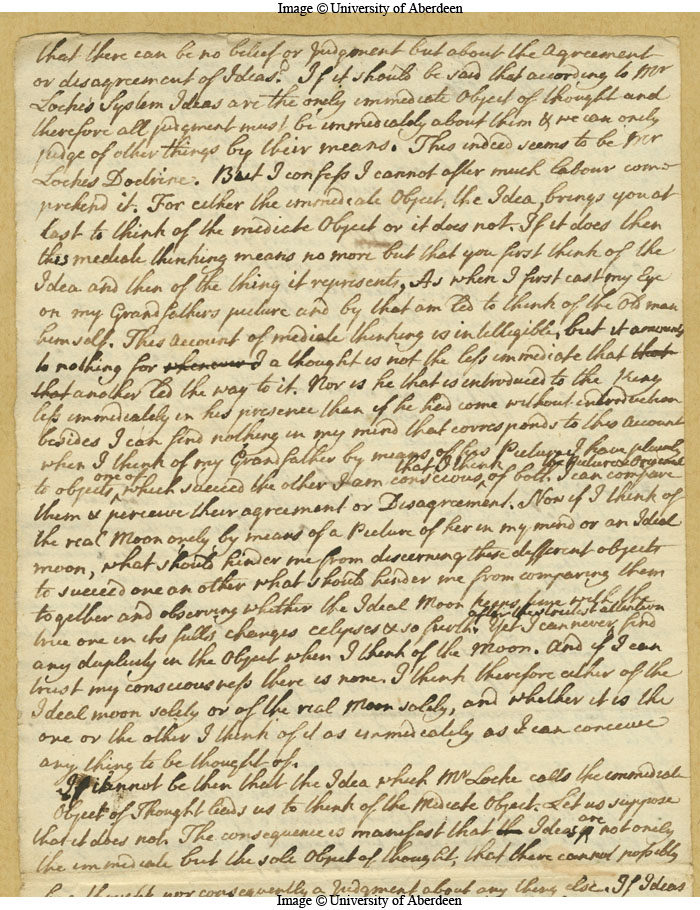 Image © University of Aberdeen
that there can be no belief or Judgment but about the Agreement
or disagreement of Ideas? If it should be said that according to Mr
Lockes System Ideas are the only immediate Object of thought and
therefore all judgment must be immediately about them & we can only
judge of other things by their means. This indeed seems to be Mr
Lockes Doctrine. But I confess I cannot after much labour com-
prehend it. For either the immediate Object, the Idea, brings you at
last to think of the mediate Object or it does not. If it does then
this mediate thinking means no more but that you first think of the
Idea and then of the thing it represents, As when I first cast my Eye
on my Grandfathers picture and by that am led to think of the Old man
himself. This account of mediate thinking is intelligible, but it amounts
to nothing for whenever I a thought is not the less immediate that that
that another led the way to it. Nor is he that is introduced to the King
less immediately in his presence than if he had come without introduction
besides I can find nothing in my mind that corresponds to this account
when I think of my Grandfather by means of his Picture I have plainly
to objects one of which succeed the other I am conscious that I think of both. I can compare
them & perceive their agreement or Disagreement. Now if I think of
the real Moon only by means of a Picture of her in my mind or an Ideal
moon, what should hinder me from discerning these different objects
to succeed one an other what should hinder me from comparing them
together and observing whether the Ideal Moon keeps time with the
true one in its fulls changes eclipses & so forth. after the strictest attention Yet I can never find
any duplicity in the Object when I think of the Moon. And if I can
trust my consciousness there is none. I think therefore either of the
Ideal moon solely or of the real Moon solely, and whether it is the
one or the other I think of it as immediately as I can conceive
any thing to be thought of.
It cannot be then that the Idea which Mr Locke calls the immediate
Object of Thought leads us to think of the Mediate Object. Let us suppose
that it does not. The consequence is manifest that the Ideas are not only
the immediate but the sole Object of thought, that there cannot possibly
be a thought nor consequently a Judgment about any thing else. If Ideas
Image © University of Aberdeen